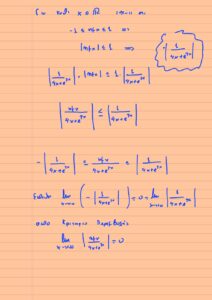 Για κάθε x ∈ ℝ ισχύει ότι
-1 ≤ ημx ≤ 1 ⇔
|ημx| ≤ 1 ⇔
|1/(4x+e^{2x})| · |ημx| ≤ 1 · |1/(4x+e^{2x})|
|ημx/(4x+e^{2x})| ≤ |1/(4x+e^{2x})|
-|1/(4x+e^{2x})| ≤ ημx/(4x+e^{2x}) ≤ |1/(4x+e^{2x})|
lim (-|1/(4x+e^{2x})|) = 0 = lim |1/(4x+e^{2x})|
από Κριτήριο Παρεμβολής
lim |ημx/(4x+e^{2x})| = 0